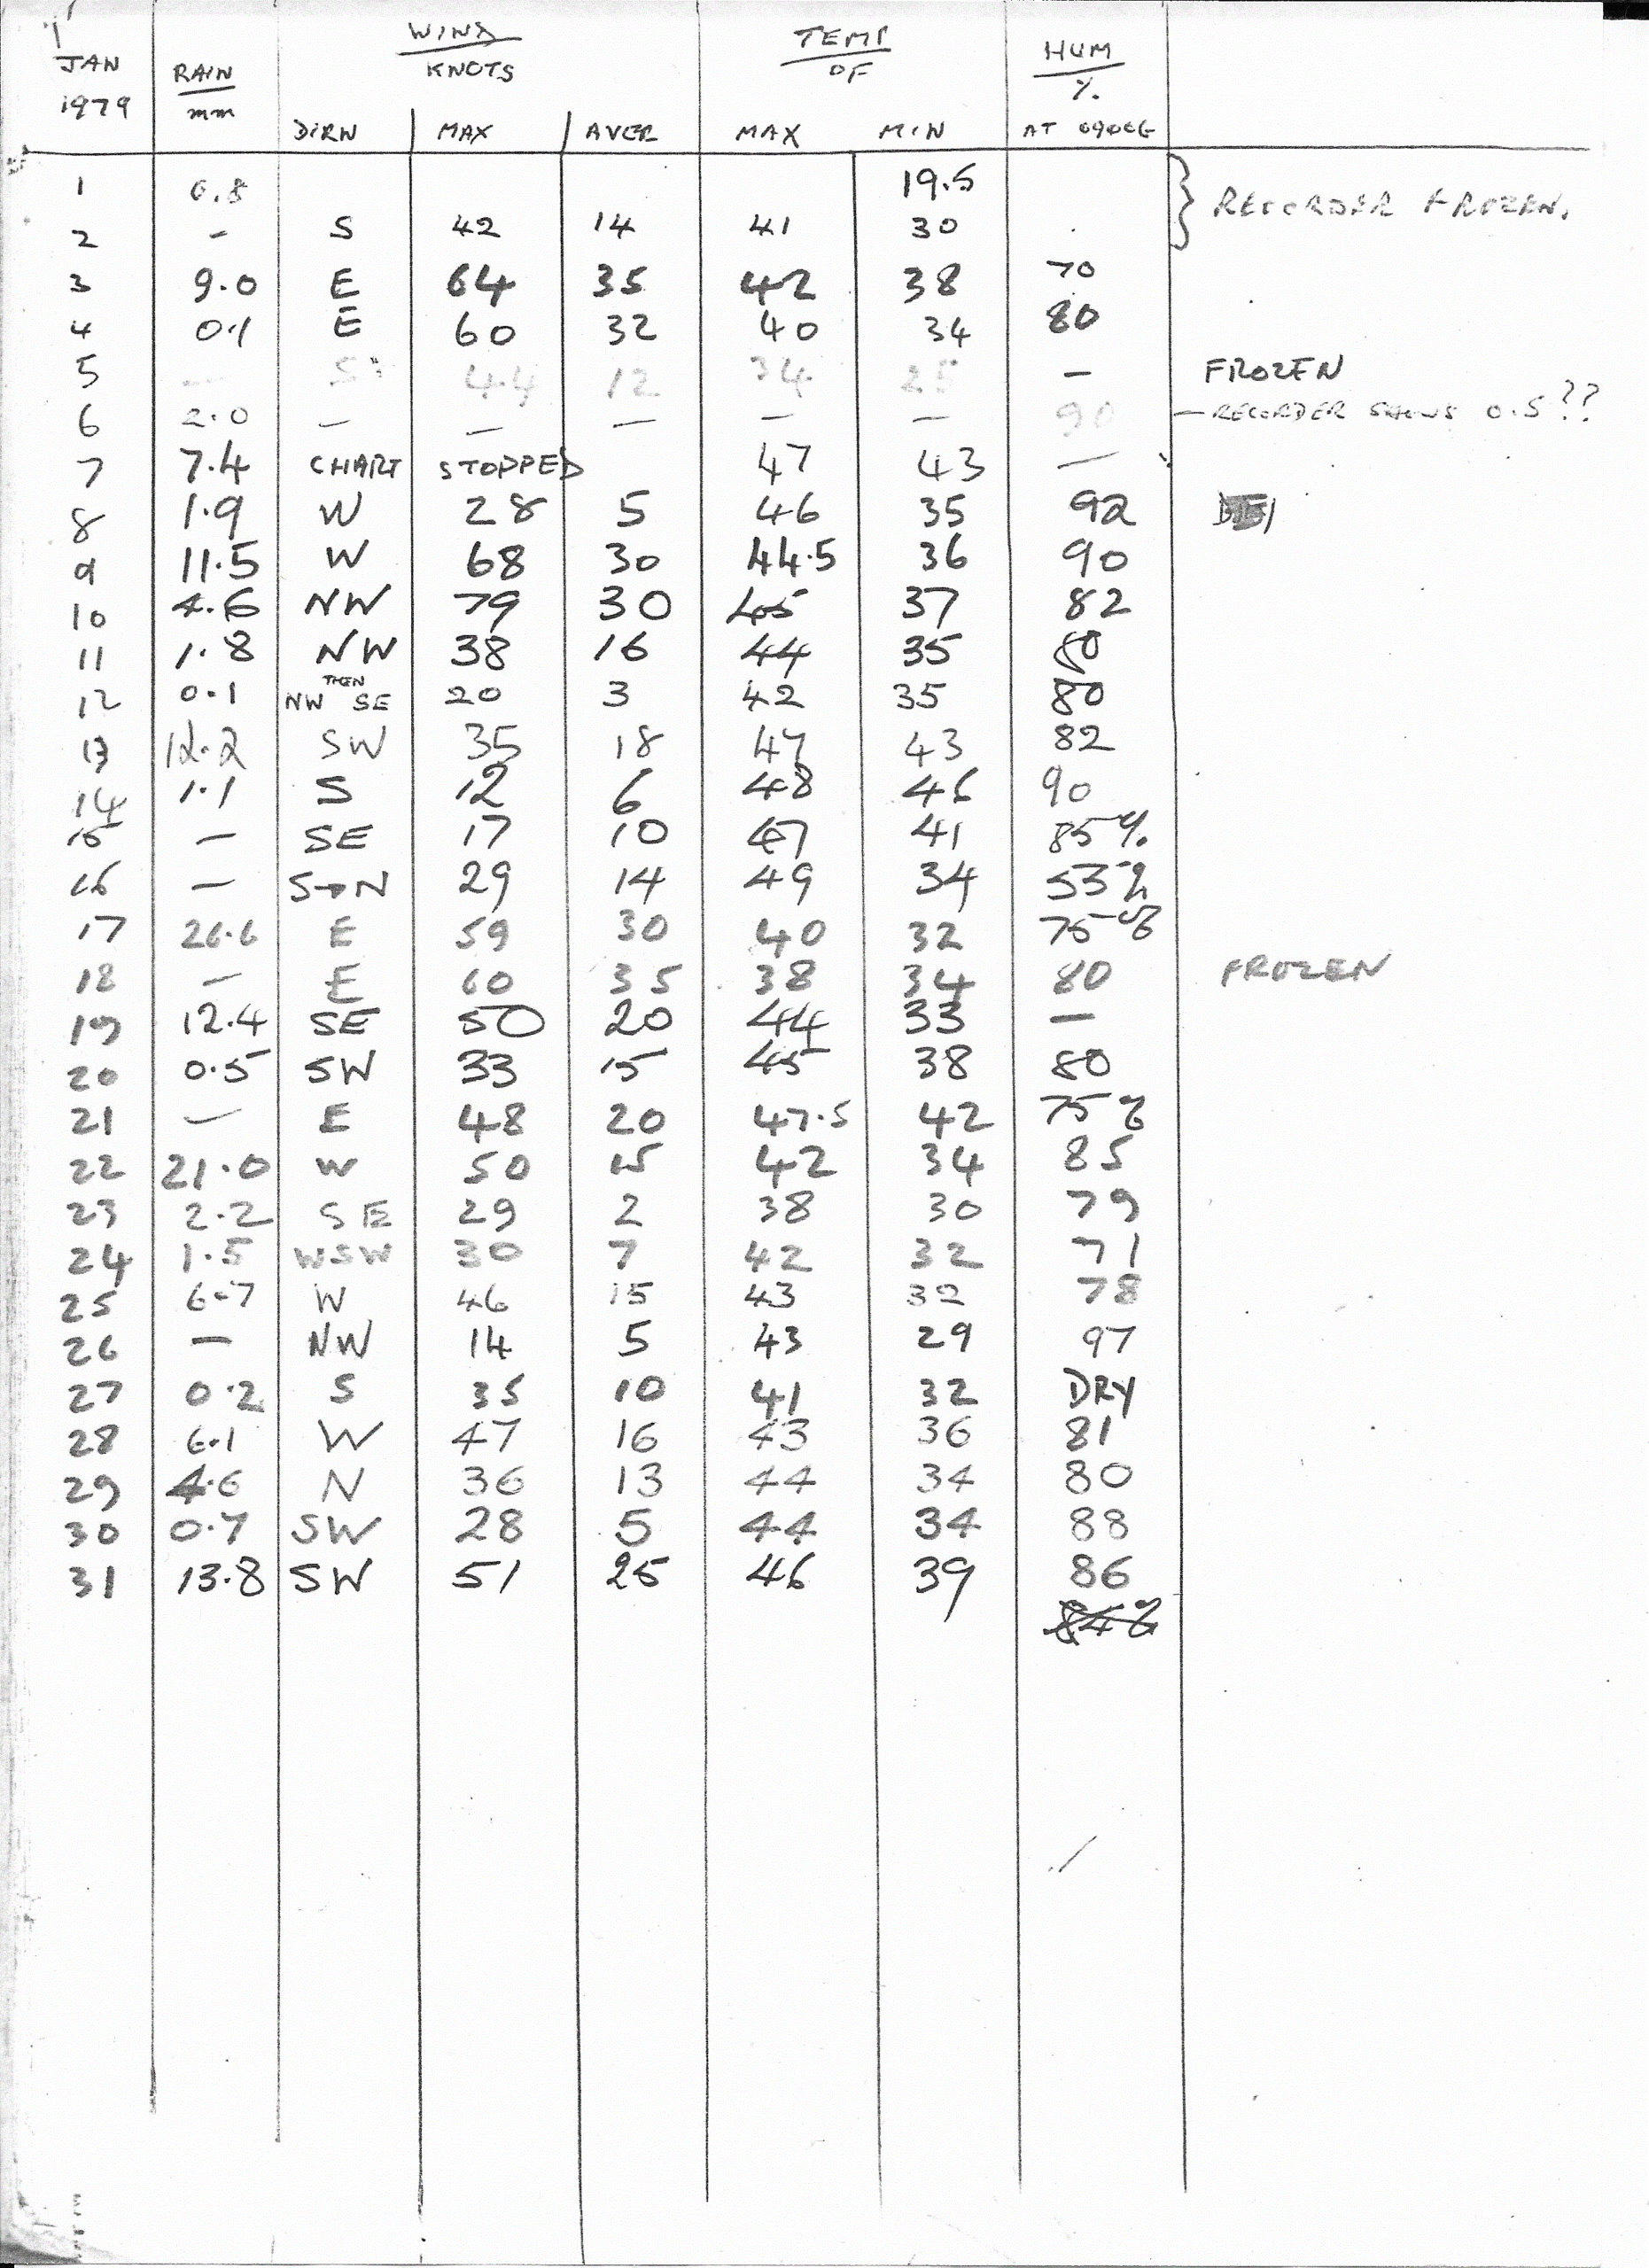 JAN 1979 RAIN mm WIND KNOTS TEMP OF HUM %
DIRN MAX AVER MAX MIN AT 0900G
1 0.8 19.5 } RECORDER FROZEN.
2 - S 42 14 41 30
3 9.0 E 64 35 42 38 70
4 0.1 E 60 32 40 34 80
5 - 44 12 34 25 - FROZEN
6 2.0 - - - - - 90 - RECORDER SHOWS 0.5??
7 7.4 CHART STOPPED 47 43 -
8 1.9 W 28 5 46 35 92
9 11.5 W 68 30 44.5 36 90
10 4.6 NW 79 30 45 37 82
11 1.8 NW 38 16 44 35 80
12 0.1 NW THEN SE 20 3 42 35 80
13 12.2 SW 35 18 47 43 82
14 1.1 S 12 6 48 46 90
15 - SE 17 10 47 41 85%
16 - S→N 29 14 49 34 53%
17 26.6 E 59 30 40 32 75%
18 - E 60 35 38 34 80 FROZEN
19 12.4 SE 50 20 44 33 -
20 0.5 SW 33 15 45 38 80
21 - E 48 20 47.5 42 75%
22 21.0 W 50 15 42 34 85
23 2.2 SE 29 2 38 30 79
24 1.5 WSW 30 7 42 32 71
25 6.7 W 46 15 43 32 78
26 - NW 14 5 43 29 97
27 0.2 S 35 10 41 32 DRY
28 6.1 W 47 16 43 36 81
29 4.6 N 36 13 44 34 80
30 0.7 SW 28 5 44 34 88
31 13.8 SW 51 25 46 39 86
84%